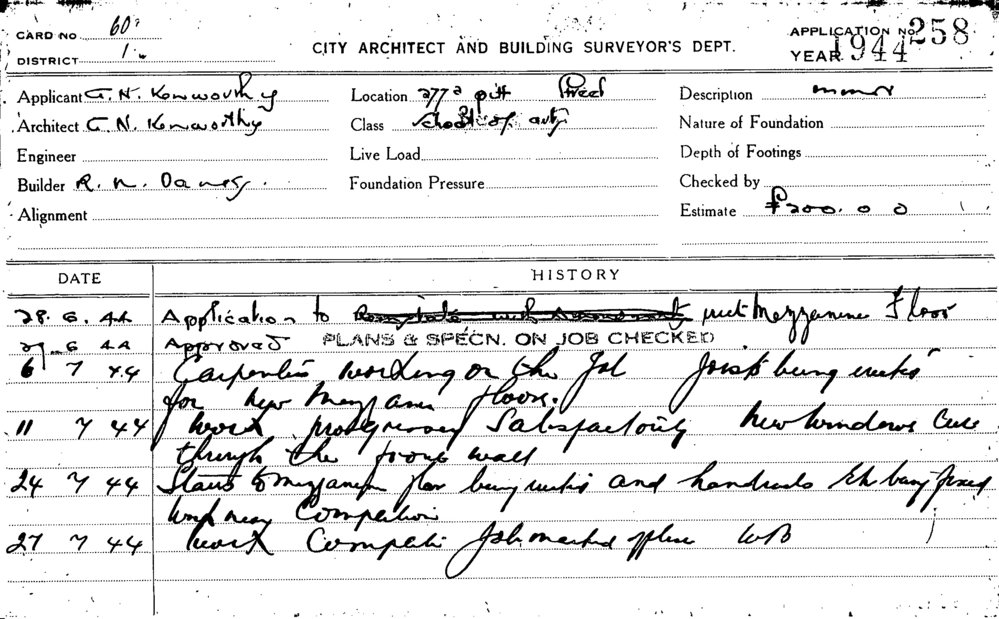 CARD No 60
DISTRICT 1
CITY ARCHITECT AND BUILDING SURVEYOR'S DEPT.
APPLICATION No 258
YEAR 1944
Applicant G. N. Kenworthy
Location 277a pitt Street
Description minor
Architect G. N. Kenworthy
Class School of arts
Nature of Foundation
Engineer
Live Load
Depth of Footings
Builder R. N.
Foundation Pressure
Checked by
Alignment
Estimate £200. 0 0
DATE
HISTORY
28. 6. 44 Application to erect Mezzanine Floor
29. 6 44 Approved PLANS & SPECN. ON JOB CHECKED
6 7 44 Carpenters working on the Job Joists being
for new Mezzanine floor.
11 7 44 work progressing Satisfactorily New windows
through the front wall
24 7 44 Stairs to mezzanine floor being and handrails being fixed
work near Completion
27 7 44 work Complete Job marked off WB